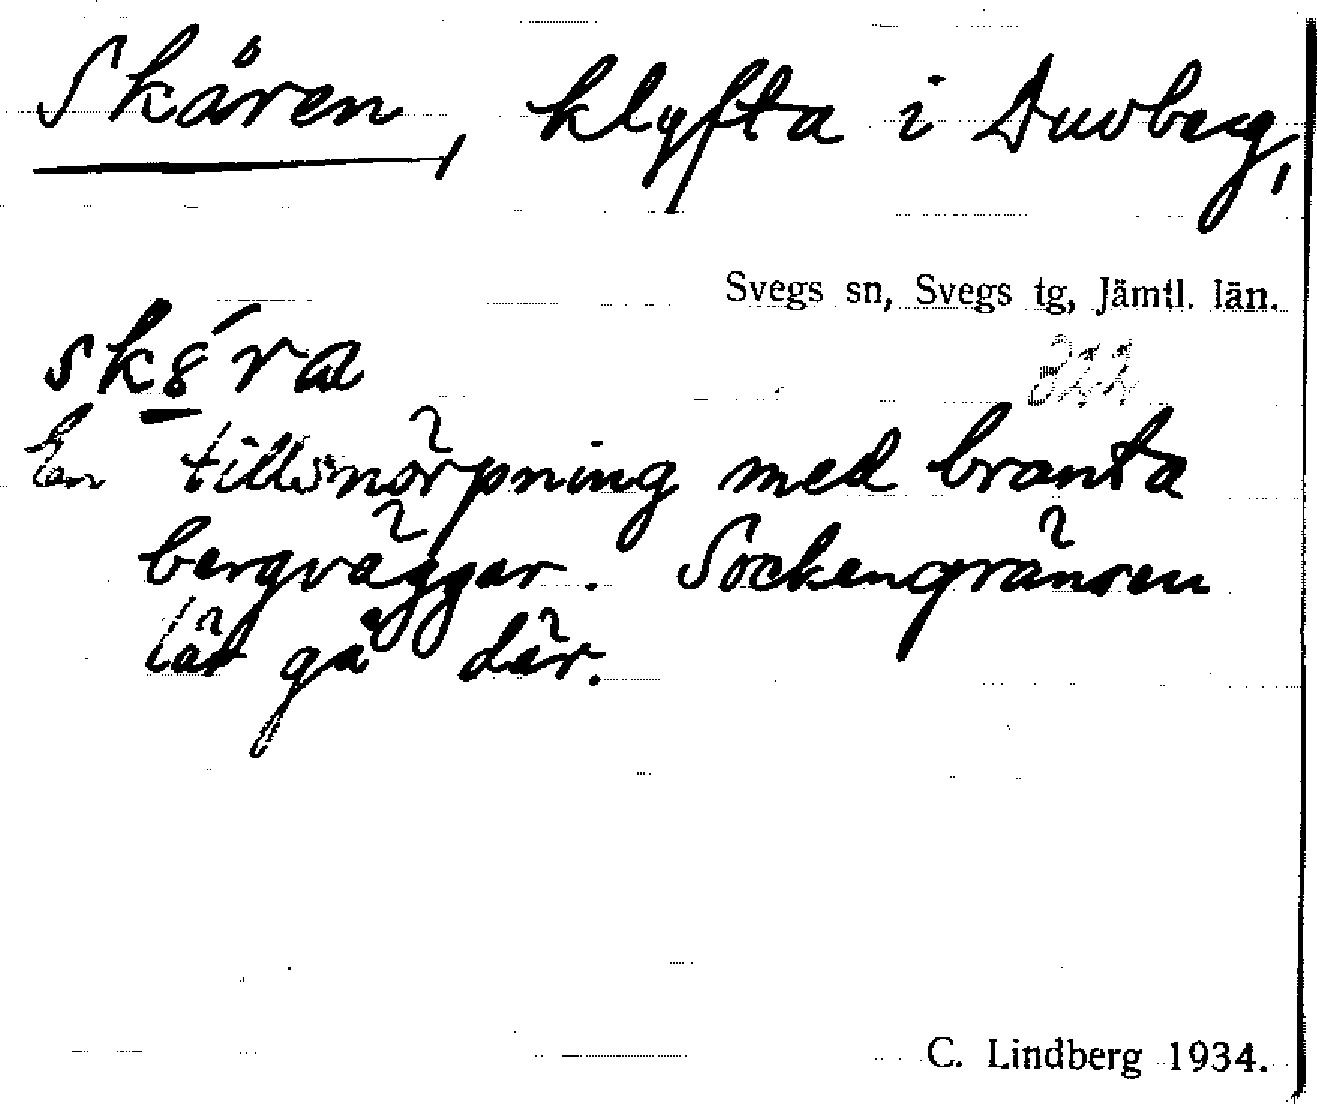 Skåren, klyfta i Duvberg,
Svegs sn, Svegs tg, Jämtl. län.
sk8́ra
322
En tillsnörpning med branta
bergväggar. Sockengränsen
lär gå där.
C. Lindberg 1934.